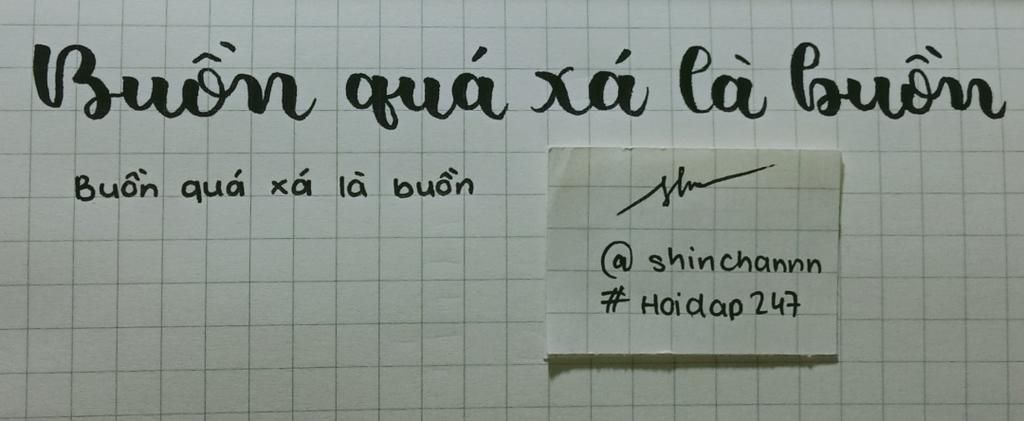 Buồn quá xá là buồn
Buồn quá xá là buồn
@ shinchannn
# Hoidap 247